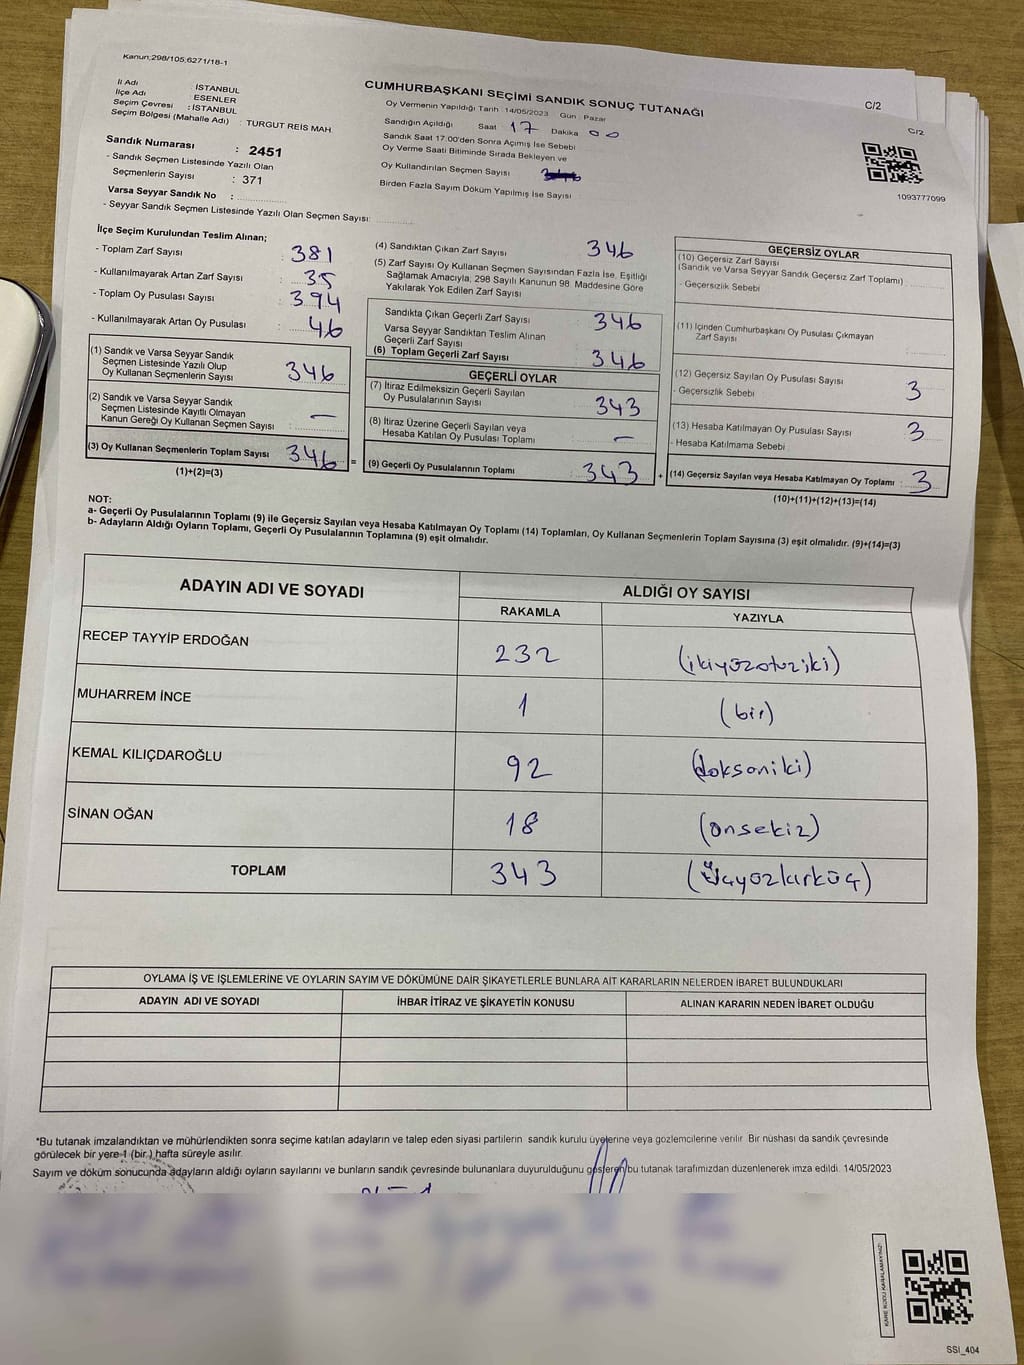 Kanun;298/105,6271/18-1
İl Adı : İSTANBUL
İlçe Adı : ESENLER
Seçim Çevresi : İSTANBUL
Seçim Bölgesi (Mahalle Adı) : TURGUT REİS MAH.
Sandık Numarası : 2451
- Sandık Seçmen Listesinde Yazılı Olan
Seçmenlerin Sayısı : 371
Varsa Seyyar Sandık No :
- Seyyar Sandık Seçmen Listesinde Yazılı Olan Seçmen Sayısı:
CUMHURBAŞKANI SEÇİMİ SANDIK SONUÇ TUTANAĞI
Oy Vermenin Yapıldığı Tarih 14/05/2023 Gün : Pazar
Sandığın Açıldığı Saat 17 Dakika 00
Sandık Saat 17.00'den Sonra Açımış İse Sebebi
Oy Verme Saati Bitiminde Sırada Bekleyen ve
Oy Kullandırılan Seçmen Sayısı
Birden Fazla Sayım Döküm Yapılmış İse Sayısı
C/2
C/2
1093777099
İlçe Seçim Kurulundan Teslim Alınan;
- Toplam Zarf Sayısı : 381
- Kullanılmayarak Artan Zarf Sayısı : 35
- Toplam Oy Pusulası Sayısı : 394
- Kullanılmayarak Artan Oy Pusulası : 46
(1) Sandık ve Varsa Seyyar Sandık
Seçmen Listesinde Yazılı Olup
Oy Kullanan Seçmenlerin Sayısı : 346
(2) Sandık ve Varsa Seyyar Sandık
Seçmen Listesinde Kayıtlı Olmayan
Kanun Gereği Oy Kullanan Seçmen Sayısı : —
(3) Oy Kullanan Seçmenlerin Toplam Sayısı 346
(1)+(2)=(3)
=
(4) Sandıktan Çıkan Zarf Sayısı : 346
(5) Zarf Sayısı Oy Kullanan Seçmen Sayısından Fazla İse, Eşitliği
Sağlamak Amacıyla, 298 Sayılı Kanunun 98. Maddesine Göre
Yakılarak Yok Edilen Zarf Sayısı
Sandıkta Çıkan Geçerli Zarf Sayısı : 346
Varsa Seyyar Sandıktan Teslim Alınan
Geçerli Zarf Sayısı
(6) Toplam Geçerli Zarf Sayısı : 346
GEÇERLİ OYLAR
(7) İtiraz Edilmeksizin Geçerli Sayılan
Oy Pusulalarının Sayısı : 343
(8) İtiraz Üzerine Geçerli Sayılan veya
Hesaba Katılan Oy Pusulası Toplamı : —
(9) Geçerli Oy Pusulalarının Toplamı : 343
+
GEÇERSİZ OYLAR
(10) Geçersiz Zarf Sayısı
(Sandık ve Varsa Seyyar Sandık Geçersiz Zarf Toplamı) :
- Geçersizlik Sebebi
(11) İçinden Cumhurbaşkanı Oy Pusulası Çıkmayan
Zarf Sayısı
(12) Geçersiz Sayılan Oy Pusulası Sayısı : 3
- Geçersizlik Sebebi
(13) Hesaba Katılmayan Oy Pusulası Sayısı : 3
- Hesaba Katılmama Sebebi
(14) Geçersiz Sayılan veya Hesaba Katılmayan Oy Toplamı : 3
(10)+(11)+(12)+(13)=(14)
NOT:
a- Geçerli Oy Pusulalarının Toplamı (9) ile Geçersiz Sayılan veya Hesaba Katılmayan Oy Toplamı (14) Toplamları, Oy Kullanan Seçmenlerin Toplam Sayısına (3) eşit olmalıdır. (9)+(14)=(3)
b- Adayların Aldığı Oyların Toplamı, Geçerli Oy Pusulalarının Toplamına (9) eşit olmalıdır.
ADAYIN ADI VE SOYADI
ALDIĞI OY SAYISI
RAKAMLA YAZIYLA
RECEP TAYYİP ERDOĞAN 232 (ikiyüzotuziki)
MUHARREM İNCE 1 (bir)
KEMAL KILIÇDAROĞLU 92 (doksaniki)
SİNAN OĞAN 18 (onsekiz)
TOPLAM 343
OYLAMA İŞ VE İŞLEMLERİNE VE OYLARIN SAYIM VE DÖKÜMÜNE DAİR ŞİKAYETLERLE BUNLARA AİT KARARLARIN NELERDEN İBARET BULUNDUKLARI
ADAYIN ADI VE SOYADI İHBAR İTİRAZ VE ŞİKAYETİN KONUSU ALINAN KARARIN NEDEN İBARET OLDUĞU
*Bu tutanak imzalandıktan ve mühürlendikten sonra seçime katılan adayların ve talep eden siyasi partilerin sandık kurulu üyelerine veya gözlemcilerine verilir. Bir nüshası da sandık çevresinde
görülecek bir yere 1 (bir) hafta süreyle asılır.
Sayım ve döküm sonucunda adayların aldığı oyların sayılarını ve bunların sandık çevresinde bulunanlara duyurulduğunu gösteren bu tutanak tarafımızdan düzenlenerek imza edildi. 14/05/2023
KARE KODU KARALAMAYINIZ!
SSI_404